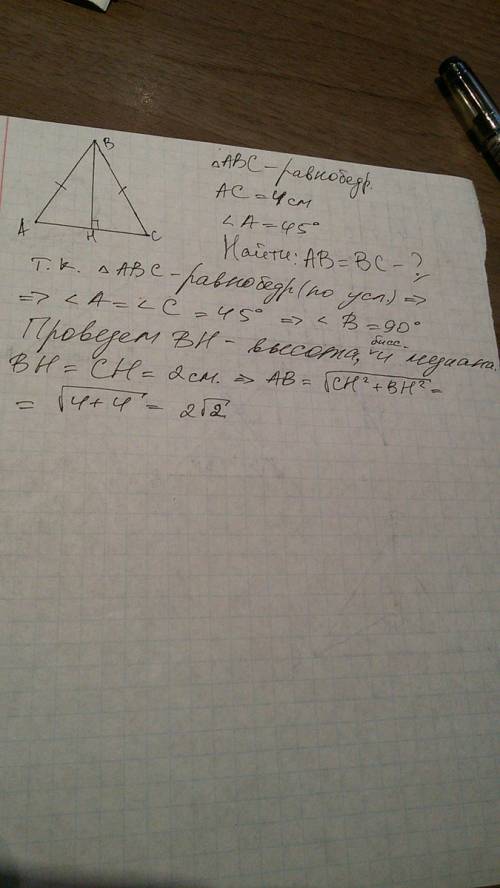 B
A
H
C
△ABC – равнобедр.
AC = 4 см
∠A = 45°
Найти: AB = BC – ?
Т.к. △ABC – равнобедр (по усл.) ⇒
⇒ ∠A = ∠C = 45° ⇒ ∠B = 90°
Проведем BH – высота, бисс. и медиана.
BH = CH = 2 см. ⇒ AB = √(CH² + BH²) =
= √(4+4) = 2√2